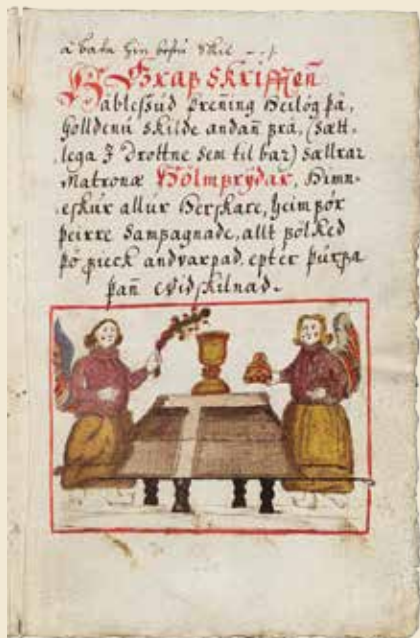 Graf skrifften
Háblessud Þrening Heilög þá,
holldenu skilde andan frá, (sætt-
lega I Drottne sem til bar) sællrar
Matronæ Hólmfrydar, Himn-
eskur allur Herskare, heimför
þeirre Samfagnade, allt fölked
þö fieck andvarpad, epter þurfa
þan Vidskilnad.